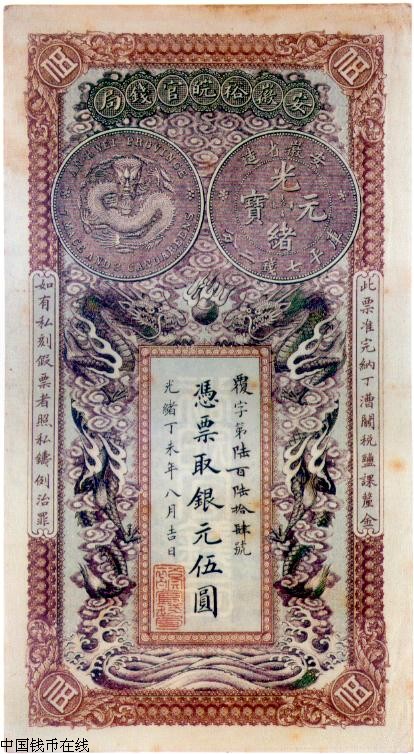 安徽裕皖官錢局
PROVINCE
7 MACE AND 2 CANDAREENS
安徽省造
光緒元寶
庫平七錢二分
此票准完納丁漕關稅鹽課釐金
覆字第陸百陸拾肆號
憑票取銀元伍圓
光緒丁未年八月吉日
如有私刻假票者照私鑄例治罪
中国钱币在线